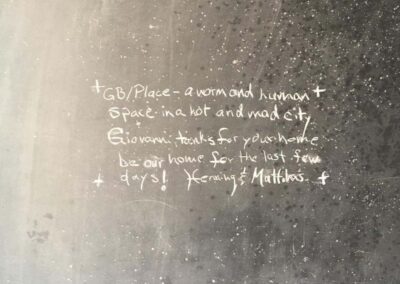 GB/Place - a worm and human
space in a hot and mad city
Giovanni tanks for your home
be our home for the last few
days! Henning & Matthias.